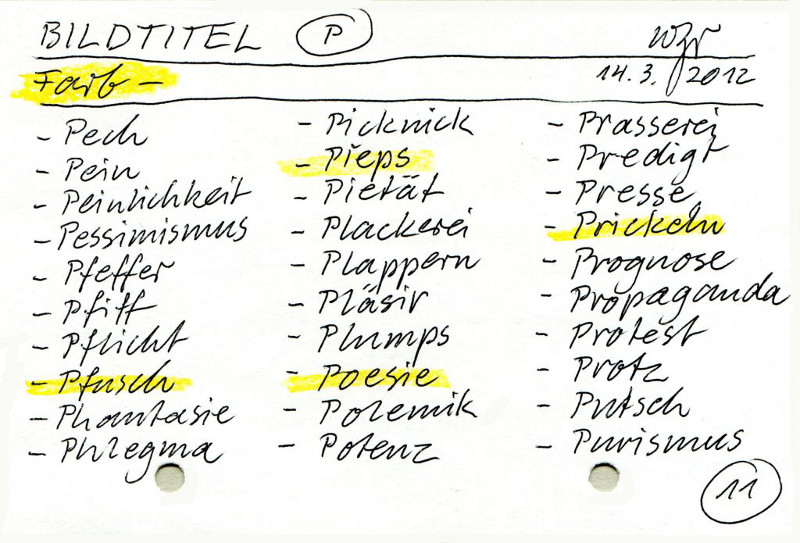 BILDTITEL P
Farb —
14.3.2012
- Pech
- Pein
- Peinlichkeit
- Pessimismus
- Pfeffer
- Pfiff
- Pflicht
- Pfusch
- Phantasie
- Phlegma
- Picknick
- Pieps
- Pietät
- Plackerei
- Plappern
- Pläsir
- Plumps
- Poesie
- Polemik
- Potenz
- Prasserei
- Predigt
- Presse
- Prickeln
- Prognose
- Propaganda
- Protest
- Protz
- Putsch
- Purismus
11